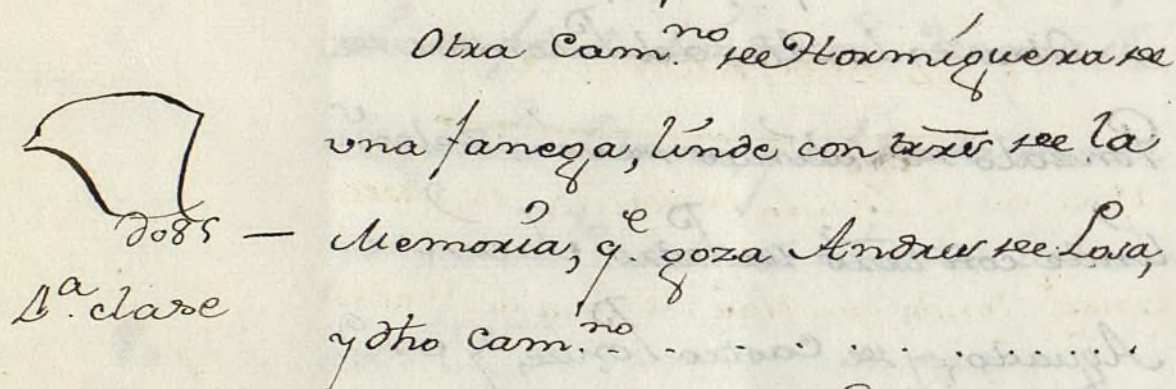 Otra Cam.no de Hormiguera de
una fanega, linde con trrs de la
Memoria, q.e goza Andres de Losa,
y dho Cam.no
1.a clase